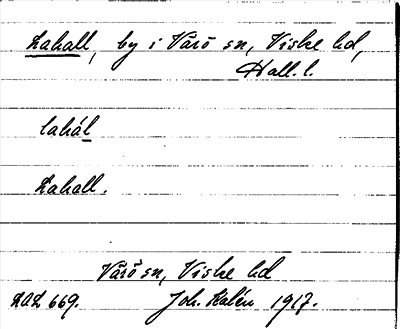 Lahall, by i Värö sn, Viske hd,
Hall. l.
lahál
Lahall.
Värö sn, Viske hd
LAL 669. Joh. Kalén 1917.